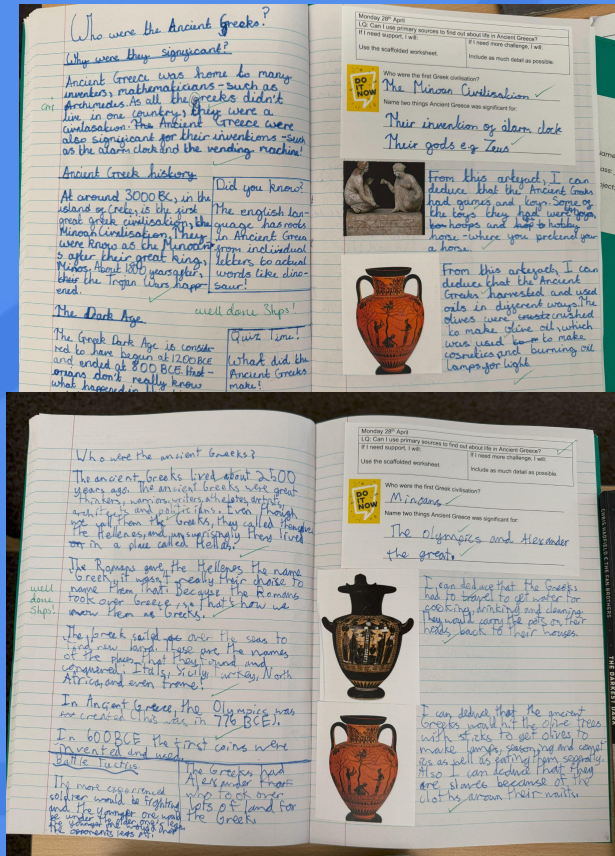 Who were the Ancient Greeks?
Why were they significant?
Ancient Greece was home to many
inventers, mathematicians - such as
Archimedus. As all the greeks didn't
live in one country, they were a
civalasation. The Ancient Greece were
also significant for their inventions - such
as the alarm clock and the vending machine!
Ancient Greek history
At around 3000 BC, in the
island of Crete, is the first
great greek civilisation, the
Minoan Civalisation, They
were know as the Minoan
s after their great king,
Minos. About 1800 years after,
the Trojan Wars happ
ened.
Did you know?
The english lan-
guage has roots
in Ancient Greece
from individual
letters to actual
words like dino-
saur!
well done 3hps!
The Dark Age
The Greek Dark Age is consid-
ered to have begun at 1200 BCE
and ended at 800 BCE. Hist-
orians don't really know
what happened in
Quiz Time!
What did the
Ancient Greeks
make?
Monday 28th April
LQ: Can I use primary sources to find out about life in Ancient Greece?
If I need support, I will:
If I need more challenge, I will:
Use the scaffolded worksheet.
Include as much detail as possible.
DO
IT
NOW
Who were the first Greek civilisation?
The Minoan Civilisation
Name two things Ancient Greece was significant for:
Their invention of alarm clock
Their gods e.g Zeus
From this artefact, I can
deduce that the Ancient Greeks
had games and toys. Some of
the toys they had were yoyos,
hoops and hobby
horse - where you pretend your
a horse.
From this artefact, I can
deduce that the Ancient
Greeks harvested and used
oils in different ways. The
olives were crushed
to make olive oil, which
was used to make
cosmetics and burning oil
lamps for light
Who were the ancient Greeks?
The ancient Greeks lived about 2500
years ago. The ancient Greeks were great
thinkers, warriors, writers, atheletes, artist,
architects and politicians. Even though
we call them the Greeks, they called themselves
the Hellenes, and unsuprisingly they lived
in a place called Hellas.
The Romans gave the Hellenes the name
Greek, it wasn't really their choise to
name them that. Because, the Romans
took over Greece, so that's how we
know them as Greeks.
well
done
3hps!
The Greek sailed over the seas to
find new land. These are the names
of the places that they found and
conquered: Italy, Sicily, Turkey, North
Africa, and even France!
In Ancient Greece, the Olympics was
created (this was in 776 BCE).
In 600 BCE the first coins were
invented and used.
Battle Tactics.
The more experienced
soldier would be fighting
and the younger one would
The Greeks had
Alexander
who took over
lots of land for
the Greeks
Monday 28th April
LQ: Can I use primary sources to find out about life in Ancient Greece?
If I need support, I will:
If I need more challenge, I will:
Use the scaffolded worksheet.
Include as much detail as possible.
DO
IT
NOW
Who were the first Greek civilisation?
Minoans
Name two things Ancient Greece was significant for:
The olympics and Alexander
the great.
I can deduce that the Greeks
had to travel to get water for
cooking, drinking and cleaning.
They would carry the pots on their
heads, back to their houses.
I can deduce that the ancient
Greeks would hit the olive trees
with sticks to get olives to
make lamps, seasoning and
as well as eating them seperatly.
Also I can deduce that they
are slaves because of the
cloths aroun their waits.
THE DARKEST DARK
CHRIS HADFIELD & THE FAN BROTHERS